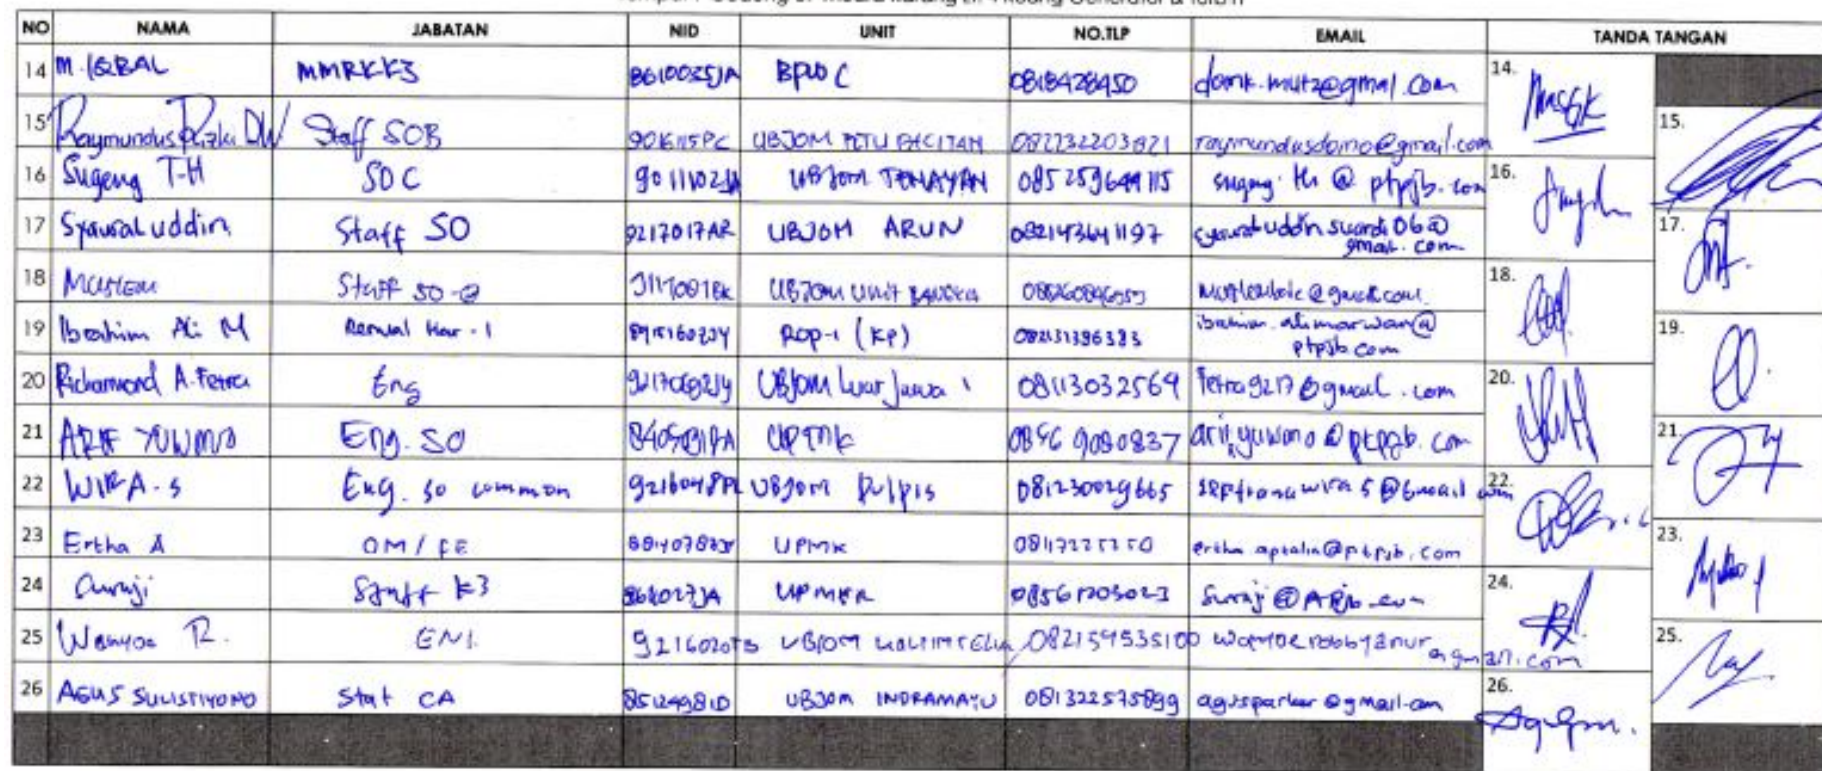 NO NAMA JABATAN NID UNIT NO.TLP EMAIL TANDA TANGAN
14 M. IQBAL MMRKK3 8610025JA BPWC 0818428450 @gmal.com 14.
15 Raymundus Rizki DW Staff SOB 9016115PC UBJOM PLTU PACITAN 082232203821 raymundusdomo@gmail.com 15.
16 Sugeng T-H SOC 9011102JA UBJOM TENAYAN 085259649115 sugeng.th@ptpjb.com 16.
17 Syawaluddin Staff SO 9217017AR UBJOM ARUN 082143641197 syawaluddinsuardi06@ 17.
gmail.com
18 Muslem Staff SO-2 UBJOM Unit BANGKA 18.
19 Ibrahim Ali M Rendal Har-1 8915160ZJY ROP-1 (KP) 082131396383 ibrahim.alimarwan@ 19.
ptpjb.com
20 Richamond A. Fetra Eng UBJOM Luar Jawa 1 08113032569 fetra9217@gmail.com 20.
21 ARIF YUWONO Eng. SO UPMK 0856 9080837 arif.yuwono@ptpjb.com 21.
22 WIRA.S Eng. so common 9216048PL UBJOM Pulpis 081230029665 septianawira5@Gmail.com 22.
23 Ertha A OM/FE UPMK 08117225250 ertha.aptalia@ptpjb.com 23.
24 Suraji Staff K3 868027JA UPMKR 08561203023 Suraji@ 24.
25 R. ENJ. 9216020TB UBJOM KALTIMTELUK 082159535100 25.
@gmail.com
26 AGUS SULISTIYONO Staf CA 8512498ID UBJOM INDRAMAYU 081322575899 agusparker@gmail.com 26.